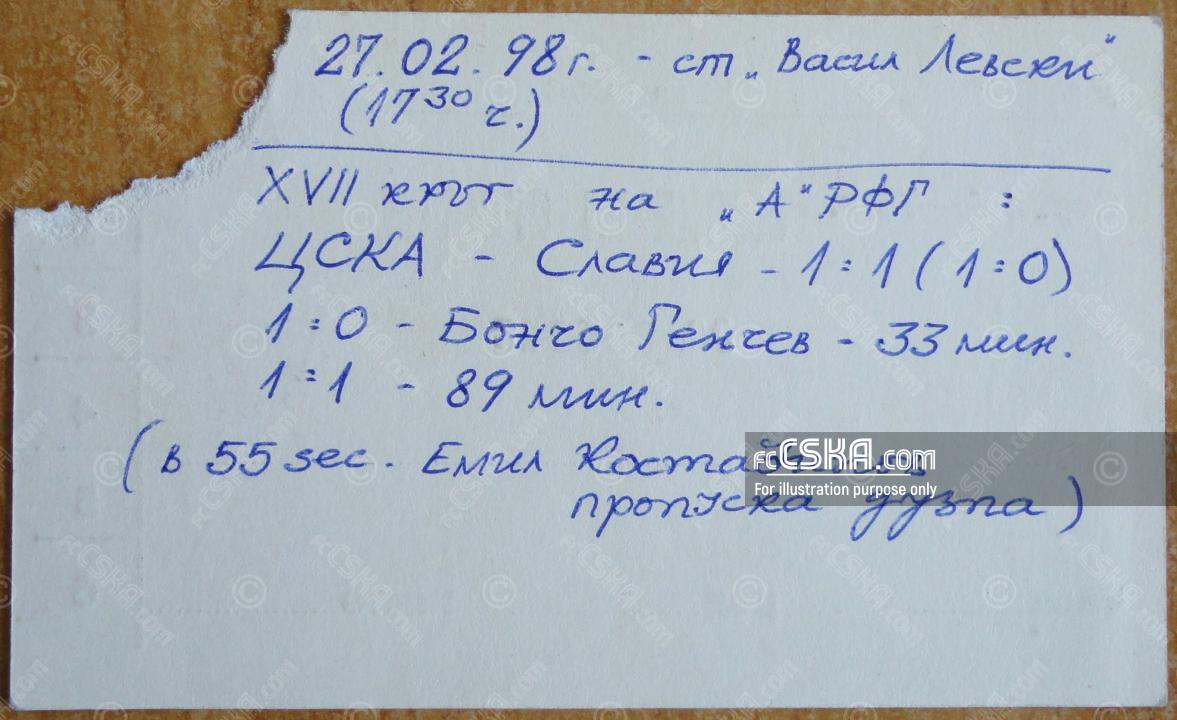 27.02.98г. - ст „Васил Левски“
(17³⁰ ч.)
XVII кръг на „А“ РФГ :
ЦСКА - Славия - 1:1 (1:0)
1:0 - Бончо Генчев - 33 мин.
1:1 - 89 мин.
(в 55 sec. Емил Костадинов
пропуска дузпа)
fcCSKA.com
For illustration purpose only